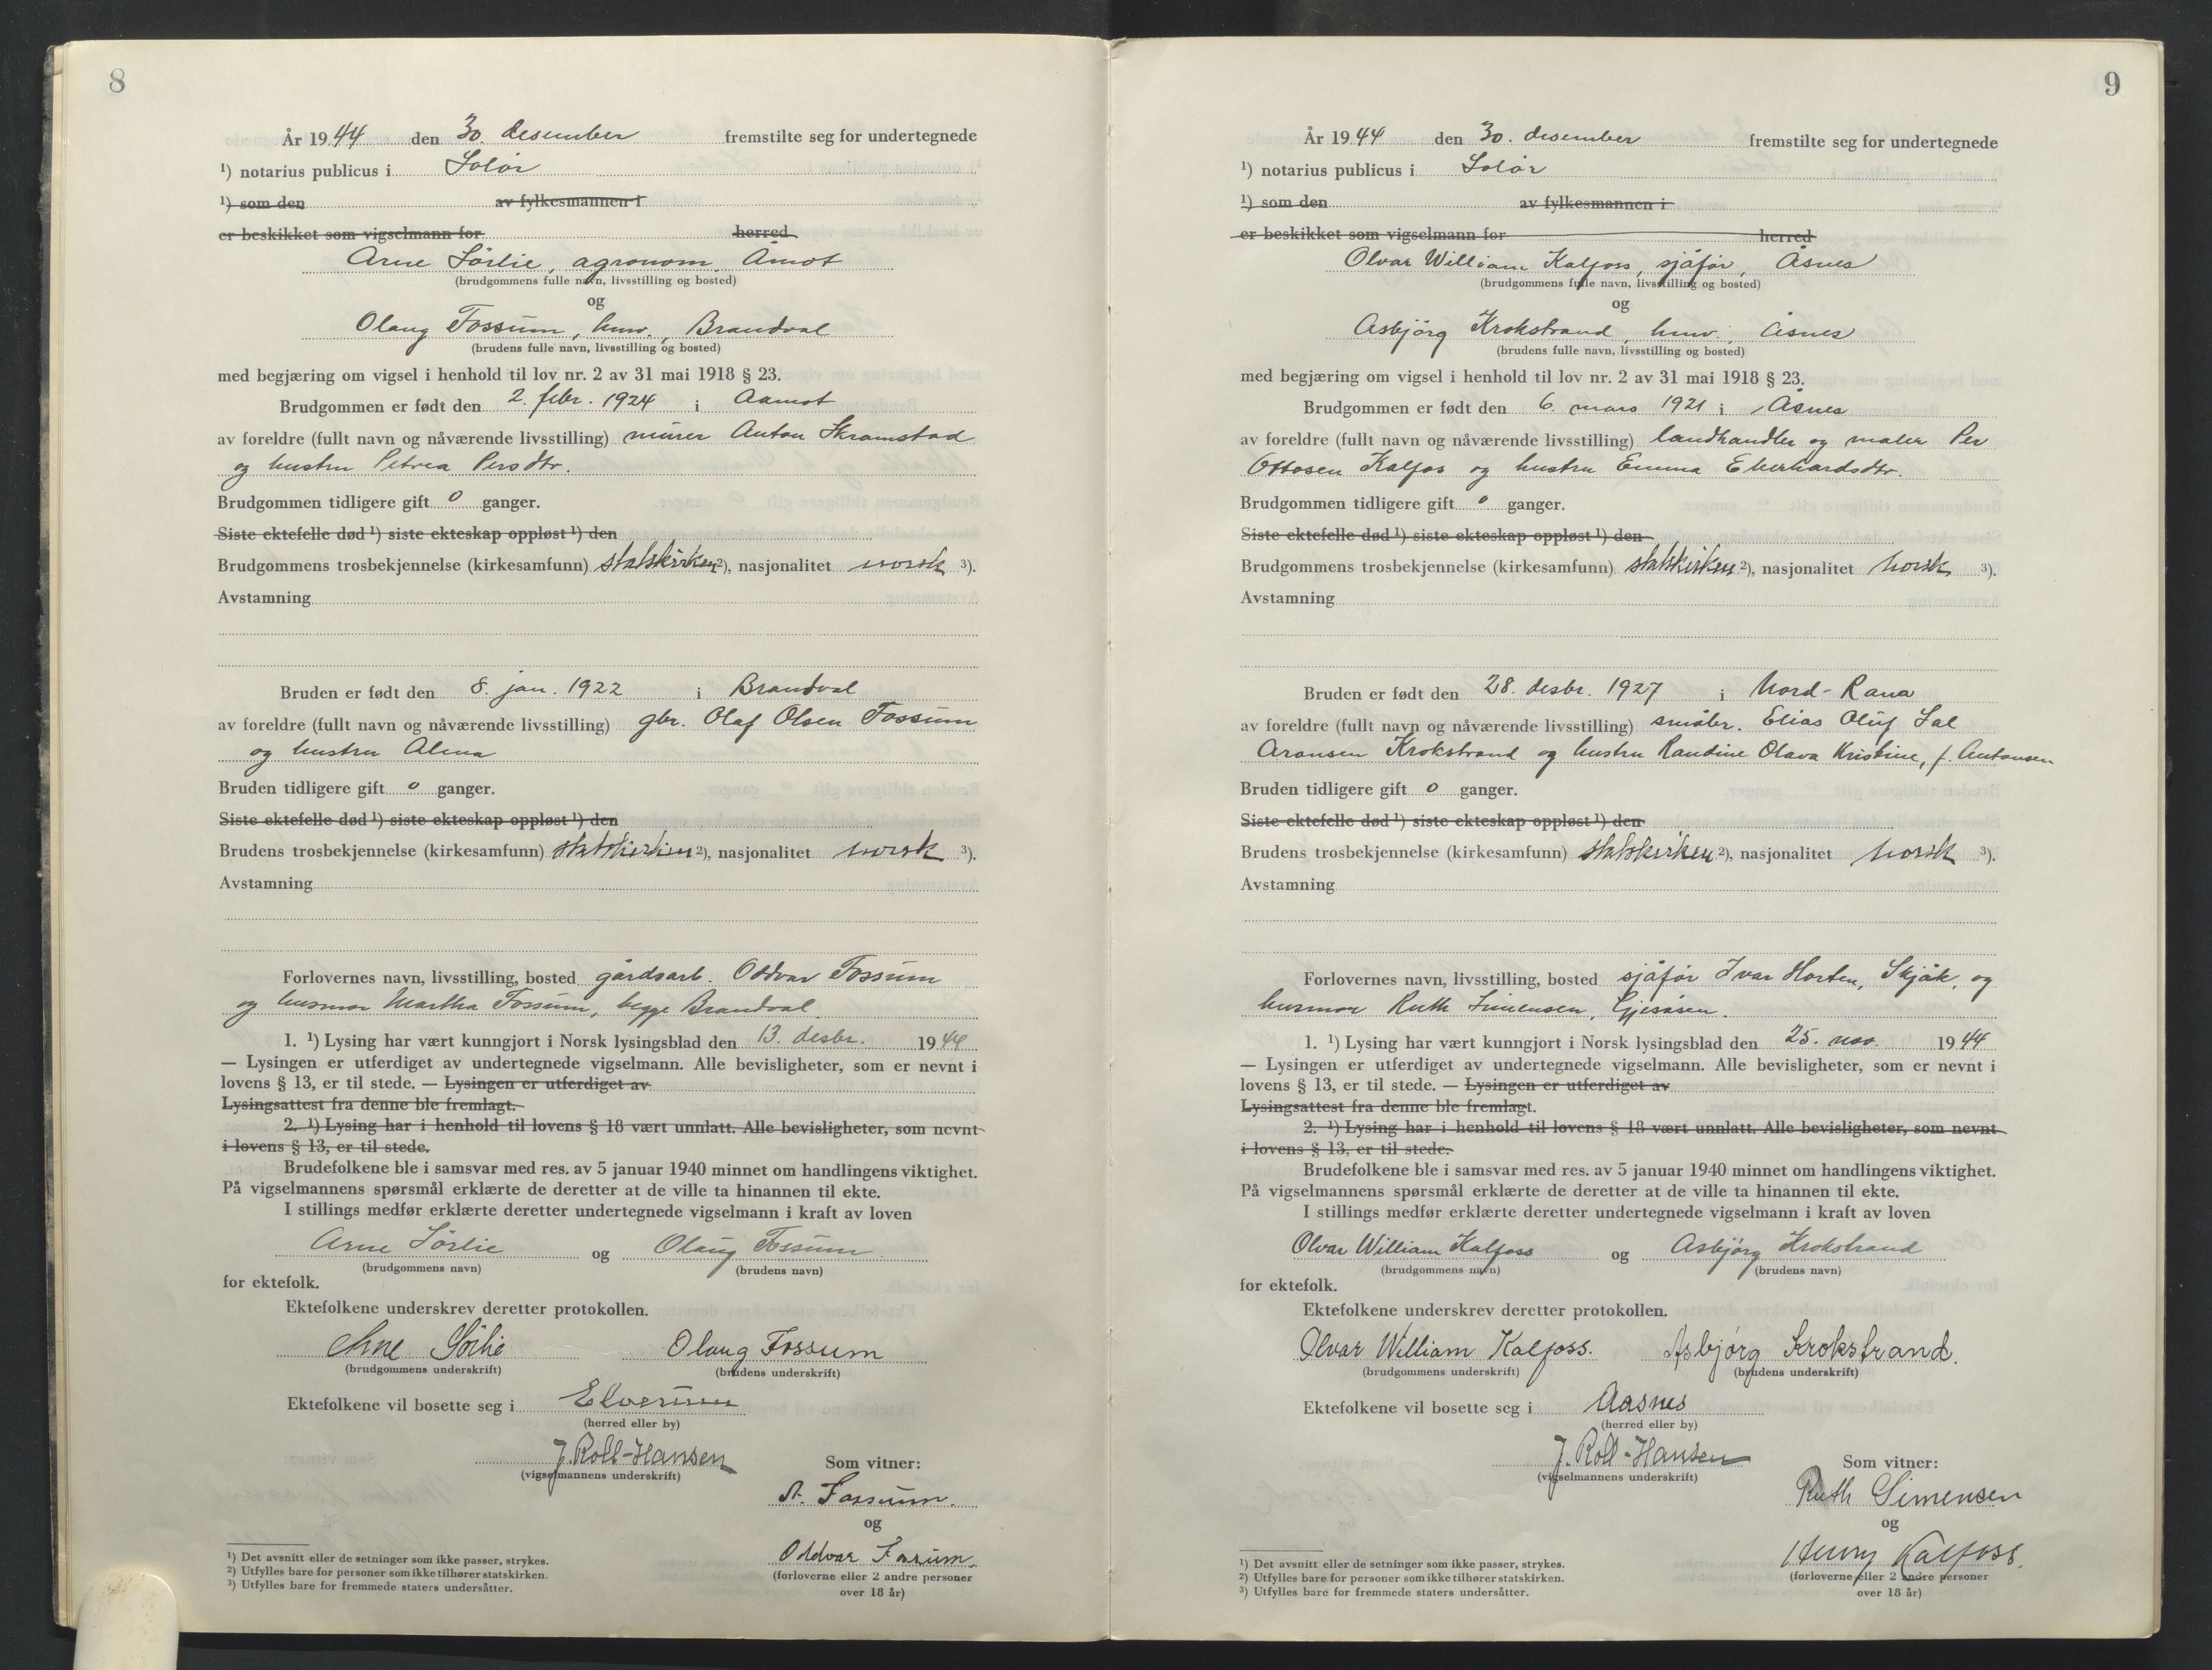 8
År 1944 den 30. desember fremstilte seg for undertegnede
¹) notarius publicus i Solør
¹) som den av fylkesmannen i
er beskikket som vigselmann for herred
Arne Sørlie, agronom, Åmot
(brudgommens fulle navn, livsstilling og bosted)
og
Olaug Fossum, hmv., Brandval
(brudens fulle navn, livsstilling og bosted)
med begjæring om vigsel i henhold til lov nr. 2 av 31 mai 1918 § 23.
Brudgommen er født den 2. febr. 1924 i Aamot
av foreldre (fullt navn og nåværende livsstilling) murer Anton Skramstad
og hustru Petrea Persdtr.
Brudgommen tidligere gift 0 ganger.
Siste ektefelle død ¹) siste ekteskap oppløst ¹) den
Brudgommens trosbekjennelse (kirkesamfunn) statskirken ²), nasjonalitet norsk ³).
Avstamning
Bruden er født den 8. jan. 1922 i Brandval
av foreldre (fullt navn og nåværende livsstilling) gbr. Olaf Olsen Fossum
og hustru Alma
Bruden tidligere gift 0 ganger.
Siste ektefelle død ¹) siste ekteskap oppløst ¹) den
Brudens trosbekjennelse (kirkesamfunn) statskirken ²), nasjonalitet norsk ³).
Avstamning
Forlovernes navn, livsstilling, bosted gårdsarb. Oddvar Fossum
og husmor Martha Fossum, begge Brandval.
1. ¹) Lysing har vært kunngjort i Norsk lysingsblad den 13. desbr. 1944
— Lysingen er utferdiget av undertegnede vigselmann. Alle bevisligheter, som er nevnt i
lovens § 13, er til stede. — Lysingen er utferdiget av
Lysingsattest fra denne ble fremlagt.
2. ¹) Lysing har i henhold til lovens § 18 vært unnlatt. Alle bevisligheter, som nevnt
i lovens § 13, er til stede.
Brudefolkene ble i samsvar med res. av 5 januar 1940 minnet om handlingens viktighet.
På vigselmannens spørsmål erklærte de deretter at de ville ta hinannen til ekte.
I stillings medfør erklærte deretter undertegnede vigselmann i kraft av loven
Arne Sørlie og Olaug Fossum
(brudgommens navn) (brudens navn)
for ektefolk.
Ektefolkene underskrev deretter protokollen.
Arne Sørlie Olaug Fossum
(brudgommens underskrift) (brudens underskrift)
Ektefolkene vil bosette seg i Elverum
(herred eller by)
J. Roll-Hansen
(vigselmannens underskrift) Som vitner:
Fossum.
og
Oddvar Fossum.
(forloverne eller 2 andre personer
over 18 år)
¹) Det avsnitt eller de setninger som ikke passer, strykes.
²) Utfylles bare for personer som ikke tilhører statskirken.
³) Utfylles bare for fremmede staters undersåtter.
9
År 1944 den 30. desember fremstilte seg for undertegnede
¹) notarius publicus i Solør
¹) som den av fylkesmannen i
er beskikket som vigselmann for herred
Olvar William Kalfoss, sjåfør, Åsnes
(brudgommens fulle navn, livsstilling og bosted)
og
Asbjørg Krokstrand, hmv., Åsnes
(brudens fulle navn, livsstilling og bosted)
med begjæring om vigsel i henhold til lov nr. 2 av 31 mai 1918 § 23.
Brudgommen er født den 6. mars 1921 i Åsnes
av foreldre (fullt navn og nåværende livsstilling) landhandler og maler Per
Ottosen Kalfos og hustru Emma Eberhardsdtr.
Brudgommen tidligere gift 0 ganger.
Siste ektefelle død ¹) siste ekteskap oppløst ¹) den
Brudgommens trosbekjennelse (kirkesamfunn) statskirken ²), nasjonalitet norsk ³).
Avstamning
Bruden er født den 28. desbr. 1927 i Nord-Rana
av foreldre (fullt navn og nåværende livsstilling) småbr. Elias Oluf Sal
Aronsen Krokstrand og hustru Randine Olava Kristine, f. Antonsen
Bruden tidligere gift 0 ganger.
Siste ektefelle død ¹) siste ekteskap oppløst ¹) den
Brudens trosbekjennelse (kirkesamfunn) statskirken ²), nasjonalitet norsk ³).
Avstamning
Forlovernes navn, livsstilling, bosted sjåfør Ivar Horten, Skjåk, og
husmor Ruth Simensen, Gjesåsen.
1. ¹) Lysing har vært kunngjort i Norsk lysingsblad den 25. nov. 1944
— Lysingen er utferdiget av undertegnede vigselmann. Alle bevisligheter, som er nevnt i
lovens § 13, er til stede. — Lysingen er utferdiget av
Lysingsattest fra denne ble fremlagt.
2. ¹) Lysing har i henhold til lovens § 18 vært unnlatt. Alle bevisligheter, som nevnt
i lovens § 13, er til stede.
Brudefolkene ble i samsvar med res. av 5 januar 1940 minnet om handlingens viktighet.
På vigselmannens spørsmål erklærte de deretter at de ville ta hinannen til ekte.
I stillings medfør erklærte deretter undertegnede vigselmann i kraft av loven
Olvar William Kalfoss og Asbjørg Krokstrand
(brudgommens navn) (brudens navn)
for ektefolk.
Ektefolkene underskrev deretter protokollen.
Olvar William Kalfoss. Asbjørg Krokstrand.
(brudgommens underskrift) (brudens underskrift)
Ektefolkene vil bosette seg i Aasnes
(herred eller by)
J. Roll-Hansen
(vigselmannens underskrift) Som vitner:
Ruth Simensen
og
Henry Kalfoss.
(forloverne eller 2 andre personer
over 18 år)
¹) Det avsnitt eller de setninger som ikke passer, strykes.
²) Utfylles bare for personer som ikke tilhører statskirken.
³) Utfylles bare for fremmede staters undersåtter.